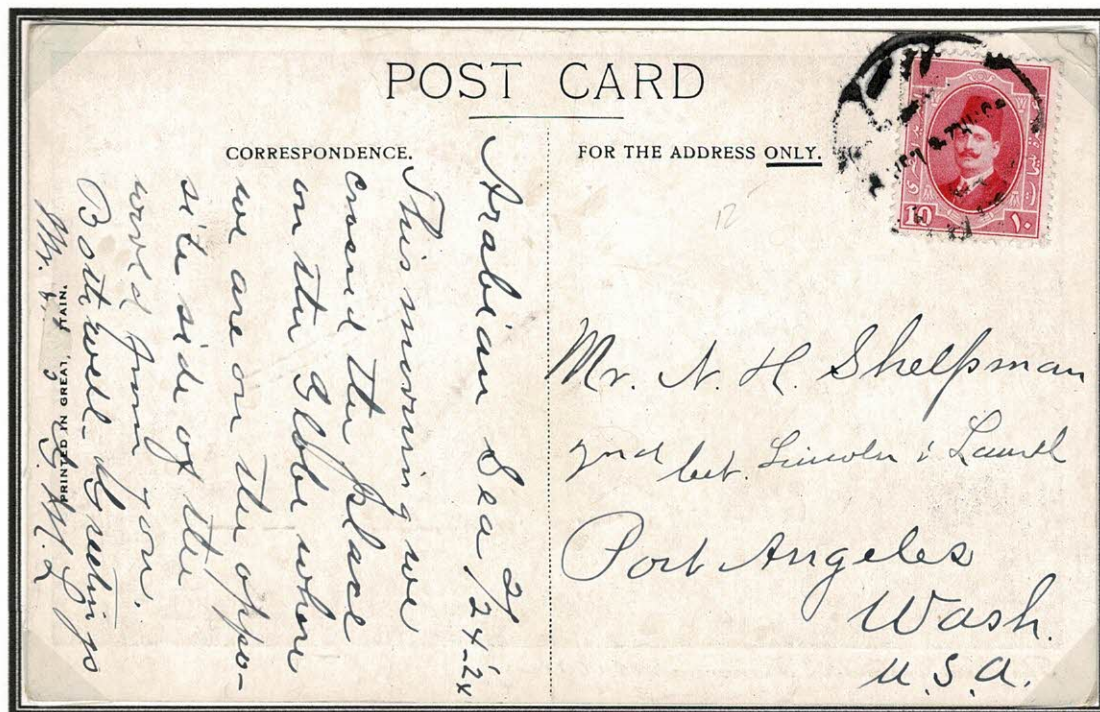 POST CARD
CORRESPONDENCE.
FOR THE ADDRESS ONLY.
Arabian Sea 2/24-24
This morning we
crossed the place
on the Globe where
we are on the oppo-
site side of the
world from you.
Both well - Greetings
Mr.
PRINTED IN GREAT
10
١٠
Mr. N. H. Shelpman
2nd bet. Lincoln & Laurel
Port Angeles
Wash.
U.S.A.